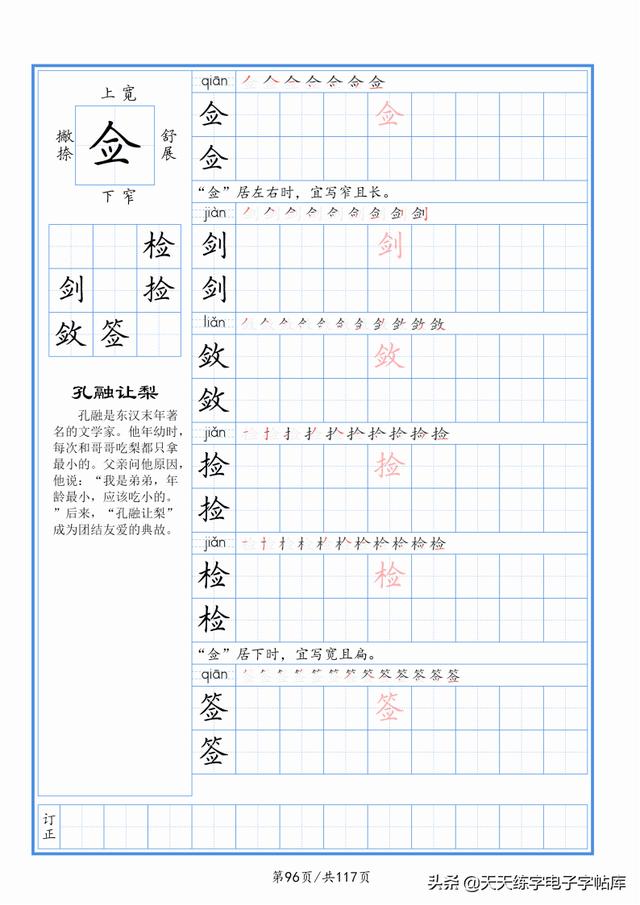 上宽
撇捺
佥
舒展
下窄
检
剑
捡
敛
签
孔融让梨
孔融是东汉末年著
名的文学家。他年幼时，
每次和哥哥吃梨都只拿
最小的。父亲问他原因，
他说：“我是弟弟，年
龄最小，应该吃小的。
”后来，“孔融让梨”
成为团结友爱的典故。
qiān
佥
佥
佥
“佥”居左右时，宜写窄且长。
jiàn
剑
剑
剑
liǎn
敛
敛
敛
jiǎn
捡
捡
捡
jiǎn
检
检
检
“佥”居下时，宜写宽且扁。
qiān
签
签
签
订正
第96页/共117页
头条 @天天练字电子字帖库